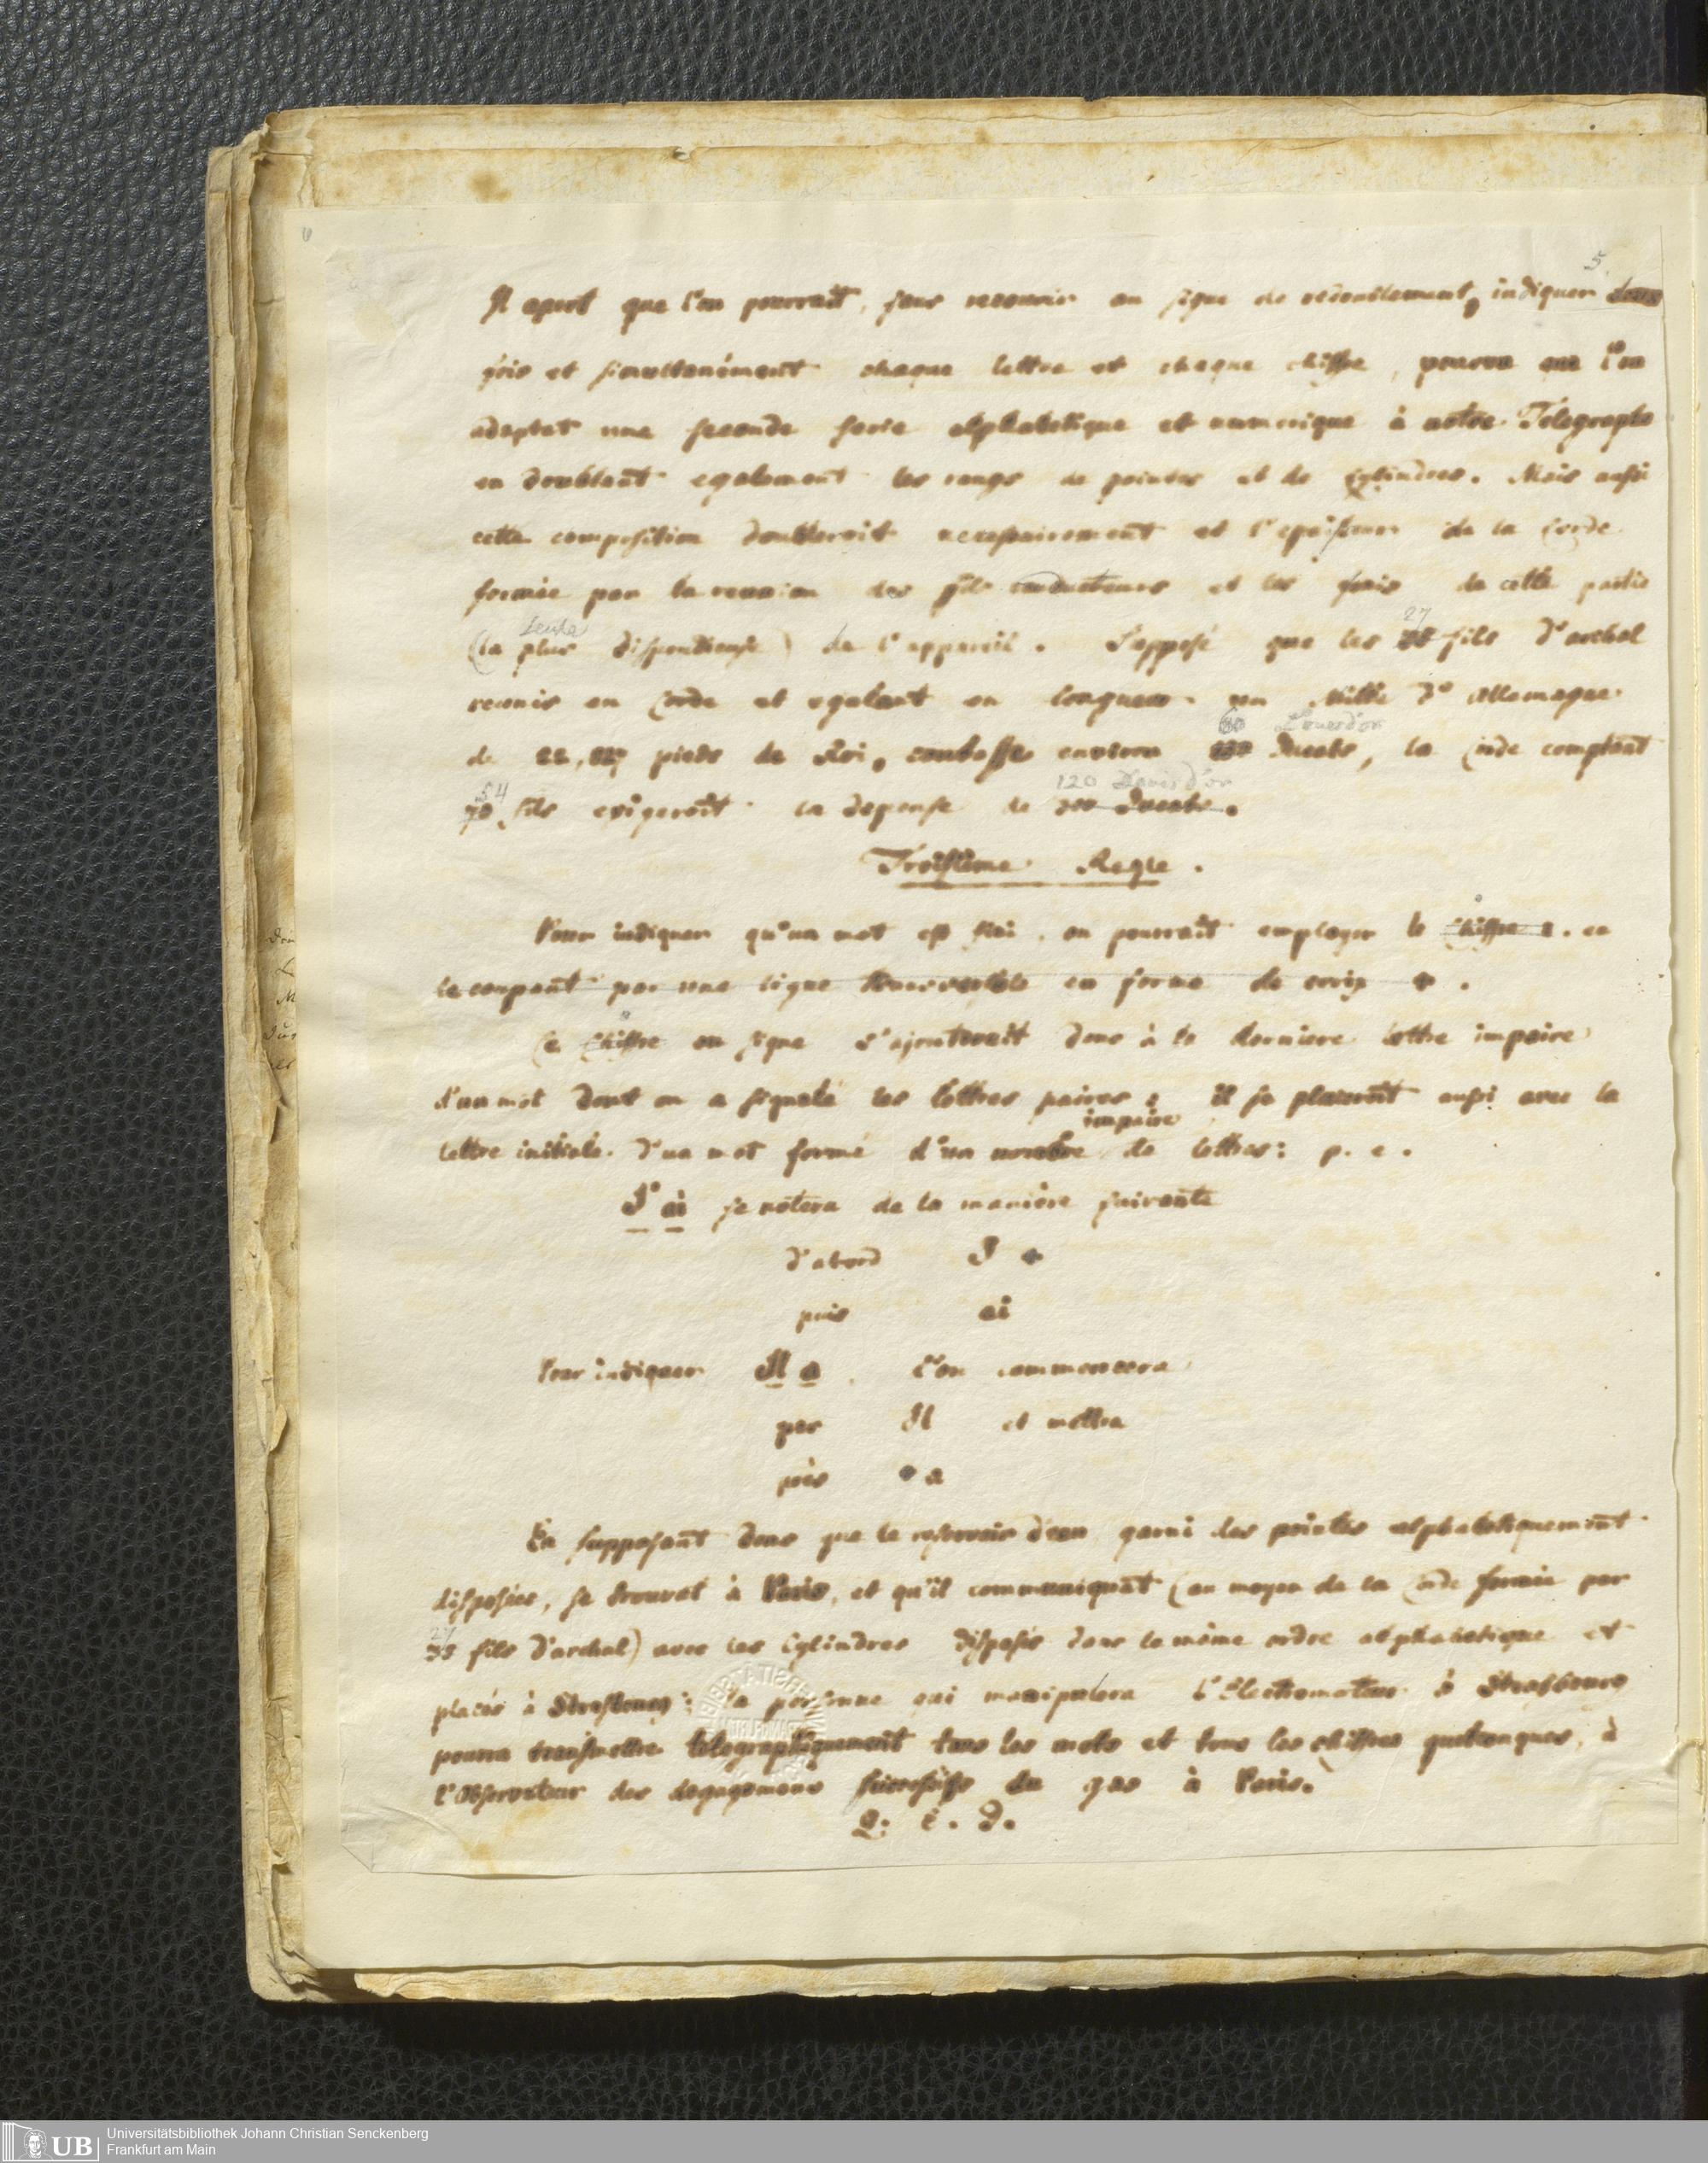 5.
Il apert que l'on pourrait, sans recourir au signe de redoublement, indiquer deux
fois et simultanément chaque lettre et chaque chiffre, pourvu que l'on
adaptat une seconde serie alphabetique et numerique à notre Telegraphe
en doublant egalement les rangs de pointes et de Cylindres. Mais aussi
cette composition doubleroit necessairement et l'epaisseur de la Corde
formée par la reunion des fils conducteurs et les frais de cette partie
Seule
27
(la plus dispendieuse) de l'appareil. Supposé que les 35 fils d'archal
reunis en Corde et egalant en longueur un Mille d'Allemagne
60 Louisd'or
de 22,827 pieds de Roi, coutasse environ Ducats, la Corde comptant
54 120 Louisd'or
70 fils exigeroit la depense de 200 Ducats.
Troisieme Regle.
Pour indiquer qu'un mot est fini, on pourrait employer le Chiffre 1. en
le coupant par une ligne transversale en forme de croix +.
Ce Chiffre ou signe s'ajouteroit donc à la derniere lettre impaire
d'un mot dont on a signalé les lettres paires; il se placeroit aussi avec la
impaire
lettre initiale d'un mot formé d'un nombre de lettres: p. e.
J'ai se notera de la manière suivante
d'abord J +
puis ai
Pour indiquer Il a, l'on commencera
par Il et mettra
près + a
En supposant donc que le reservoir d'eau garni des pointes alphabetiquement
disposées, se trouvat à Paris, et qu'il communiquat (au moyen de la Corde formée par
27
35 fils d'archal) avec les Cylindres disposés dans le même ordre alphabetique et
placés à Strasbourg: la personne qui manipulera l'Electromoteur à Strasbourg
pourra transmettre telegraphiquement tous les mots et tous les chiffres quelconques, à
l'Observateur des degagemens successifs du gas à Paris.
Q. e. d.
UB
Universitätsbibliothek Johann Christian Senckenberg
Frankfurt am Main